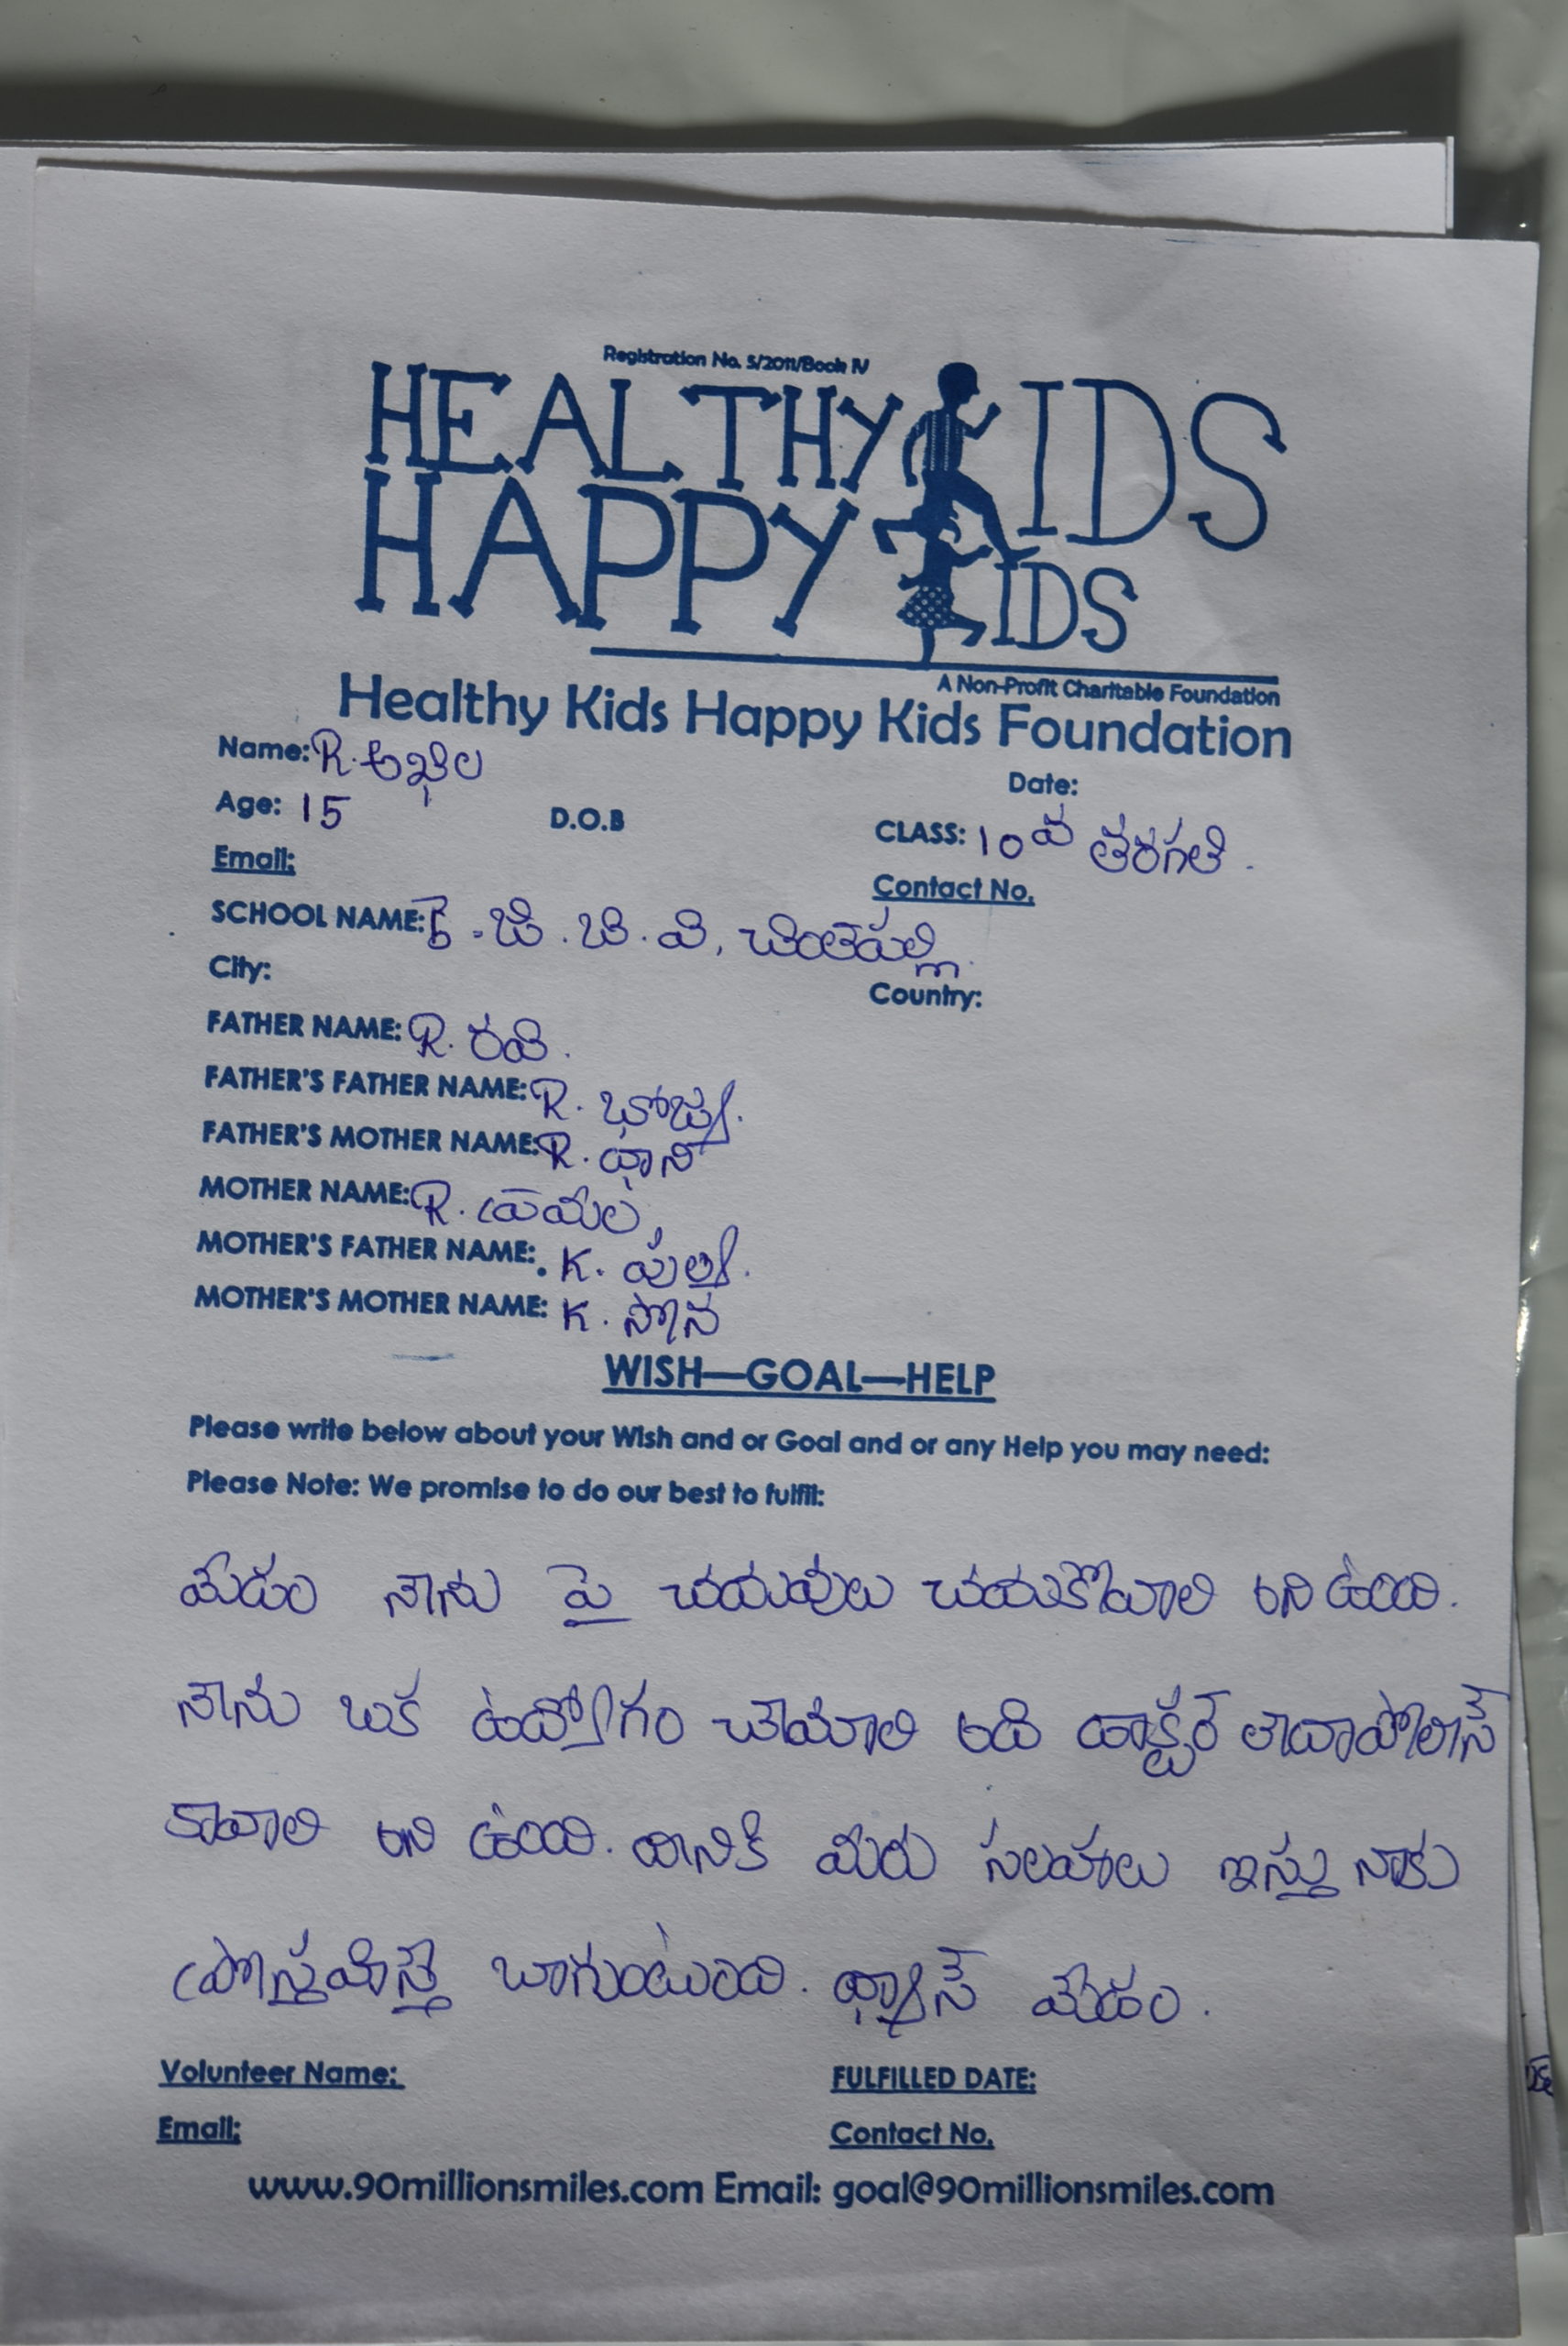 Registration No. 5/2011/Book IV
HEALTHY KIDS
HAPPY KIDS
A Non-Profit Charitable Foundation
Healthy Kids Happy Kids Foundation
Name: R. అఖిల
Date:
Age: 15 D.O.B CLASS: 10వ తరగతి.
Email: Contact No.
SCHOOL NAME: కె.జి.బి.వి, చింతపల్లి.
City: Country:
FATHER NAME: R. రవి.
FATHER'S FATHER NAME: R. భోజ్య.
FATHER'S MOTHER NAME: R. ధాని
MOTHER NAME: R. ప్రమీల,
MOTHER'S FATHER NAME: K.
MOTHER'S MOTHER NAME: K. సోన
WISH—GOAL—HELP
Please write below about your Wish and or Goal and or any Help you may need:
Please Note: We promise to do our best to fulfil:
మేడం నాను పై చదువులు చదుకోవాలి అని ఉంది.
నాను ఒక ఉద్యోగం చేయాలి అది డాక్టర్ లేదా పోలీస్
కావాలి అని ఉంది. దీనికి మీరు సలహాలు ఇస్తు నాకు
ప్రోస్తహిస్తె బాగుంటుంది. థ్యాంక్స్ మేడం.
Volunteer Name: FULFILLED DATE:
Email: Contact No.
www.90millionsmiles.com Email: goal@90millionsmiles.com